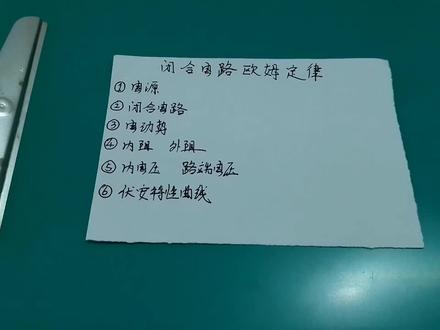 闭合电路欧姆定律
①电源
②闭合电路
③电动势
④内阻 外阻
⑤内电压 路端电压
⑥伏安特性曲线